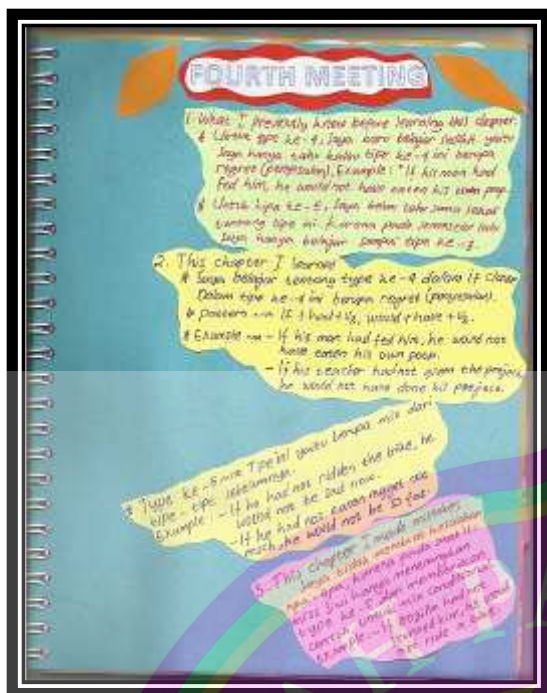 FOURTH MEETING
1. What I presently know before learning this chapter.
* Untuk tipe ke-4, saya baru belajar sedikit yaitu
Saya hanya tahu kalau tipe ke-4 ini berupa
regret (penyesalan). Example: "If his mom had
fed him, he would not have eaten his own poop.
* Untuk tipe ke-5, saya belum tahu sama sekali
tentang tipe ini. Karena pada semester lalu
saya hanya belajar sampai tipe ke-3.
2. This chapter I learned
* Saya belajar tentang type ke-4 dalam if clause
Dalam tipe ke-4 ini berupa regret (penyesalan).
* pattern → If + had + V3, would + have + V3.
* Example → - If his mom had fed him, he would not
have eaten his own poop.
- If his teacher had not given the project,
he would not have done his project.
* Type ke-5 → Tipe ini yaitu berupa mix dari
tipe-tipe sebelumnya.
Example: - If he had not ridden the bike, he
would not be sad now.
- If he had not eaten nugget
much, he would not be so fat.
3. This chapter I made mistakes
Saya tidak membuat kesalahan
apa-apa, karena pada saat
kuis saya hanya
type ke-5 dan memberikan
contoh untuk mix conditional
Example: - If had not
he
not ride a